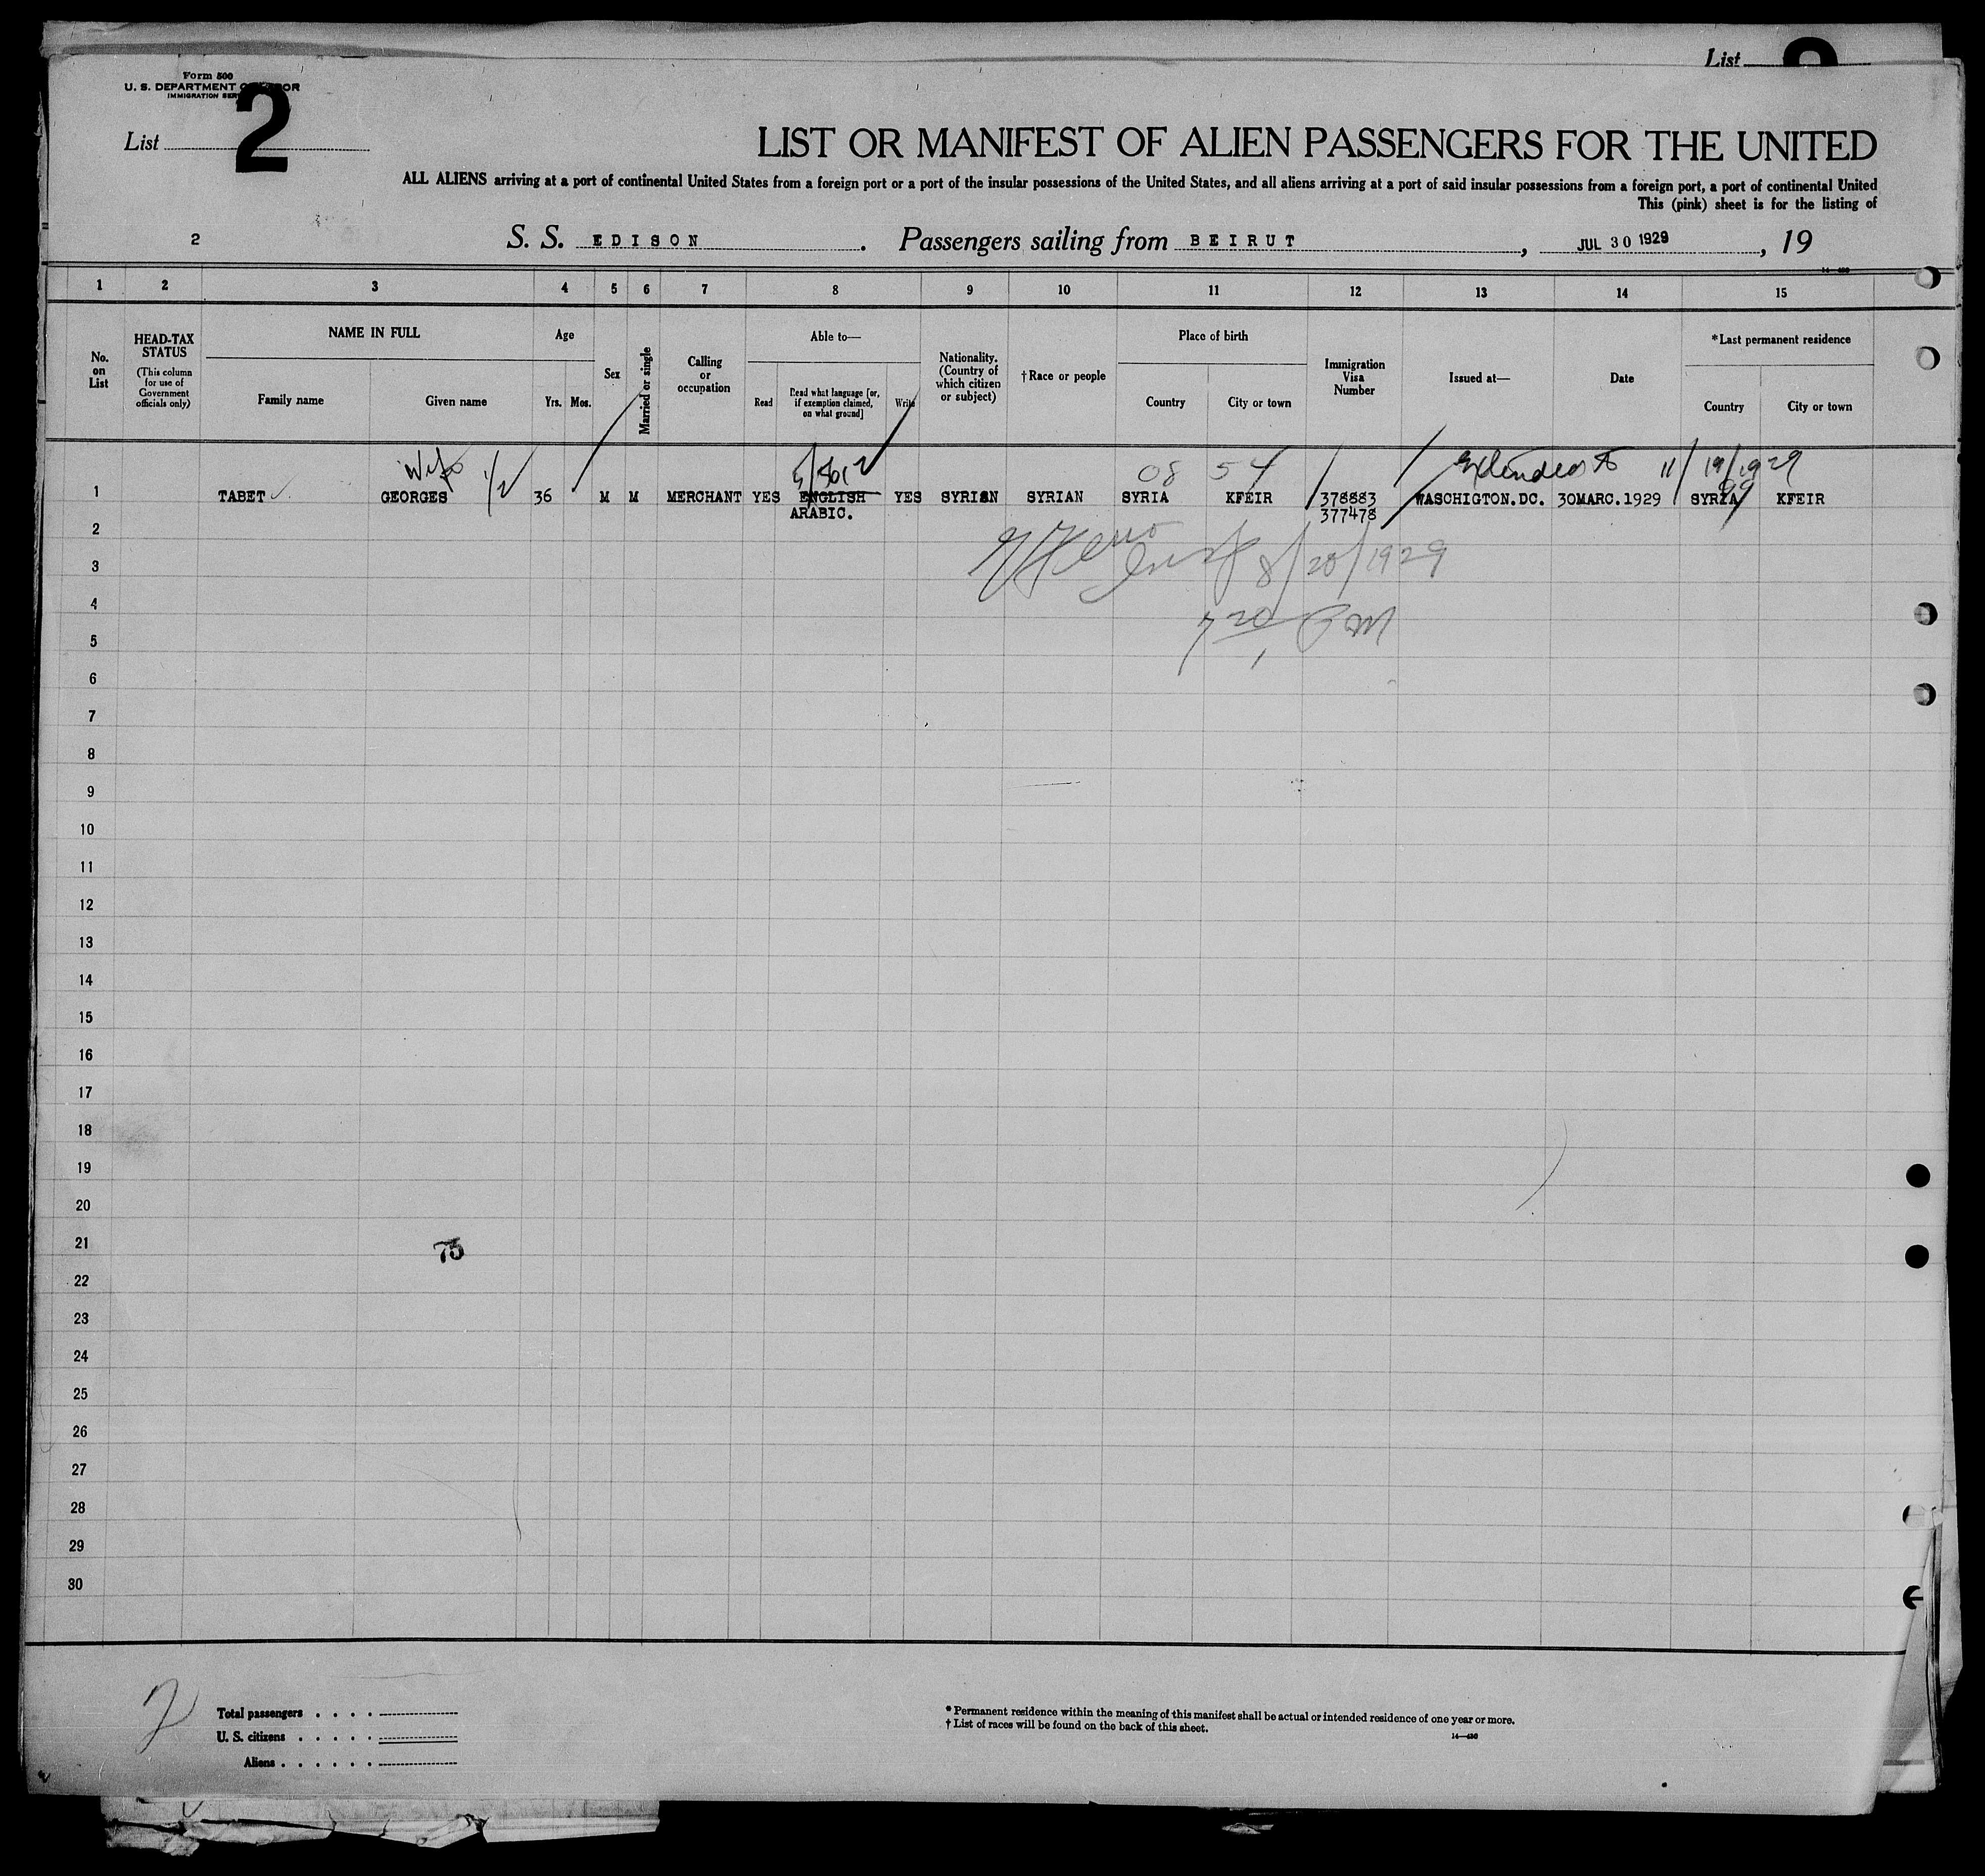 List
Form 500
U. S. DEPARTMENT OF LABOR
IMMIGRATION SERVICE
List 2
LIST OR MANIFEST OF ALIEN PASSENGERS FOR THE UNITED
ALL ALIENS arriving at a port of continental United States from a foreign port or a port of the insular possessions of the United States, and all aliens arriving at a port of said insular possessions from a foreign port, a port of continental United
This (pink) sheet is for the listing of
2 S. S. EDISON . Passengers sailing from BEIRUT , JUL 30 1929 , 19
1 2 3 4 5 6 7 8 9 10 11 12 13 14 15
No. on List
HEAD-TAX STATUS
(This column for use of Government officials only)
NAME IN FULL
Family name Given name
Age
Yrs. Mos.
Sex
Married or single
Calling or occupation
Able to—
Read
Read what language [or, if exemption claimed, on what ground]
Write
Nationality. (Country of which citizen or subject)
†Race or people
Place of birth
Country City or town
Immigration Visa Number
Issued at—
Date
*Last permanent residence
Country City or town
Wife 1/2 08 54 Extended to 11/19/1929
99
1 TABET GEORGES 36 M M MERCHANT YES ENGLISH YES SYRIAN SYRIAN SYRIA KFEIR 378883 WASCHIGTON.DC. 30MARC.1929 SYRIA KFEIR
ARABIC. 377478
2
3
8/20/1929
4
7 20 PM
5
6
7
8
9
10
11
12
13
14
15
16
17
18
19
20
21
75
22
23
24
25
26
27
28
29
30
2
Total passengers . . . .
U. S. citizens . . . . .
Aliens . . . . . .
* Permanent residence within the meaning of this manifest shall be actual or intended residence of one year or more.
† List of races will be found on the back of this sheet.
14—430